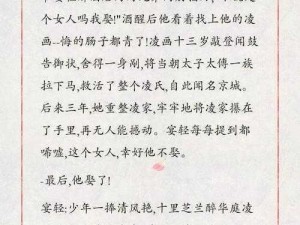 个女人吗我娶!"酒醒后他看着找上他的凌
画--悔的肠子都青了!凌画十三岁敲登闻鼓
告御状,舍得一身剐,将当朝太子太傅一族
拉下马,救活了整个凌氏,自此闻名京城。
后来三年,她重整凌家,牢牢地将凌家攥在
了手里,再无人能撼动。宴轻每每提到都
唏嘘,这个女人,幸好他不娶。
-最后,他娶了!
宴轻:少年一捧清风艳,十里芝兰醉华庭凌